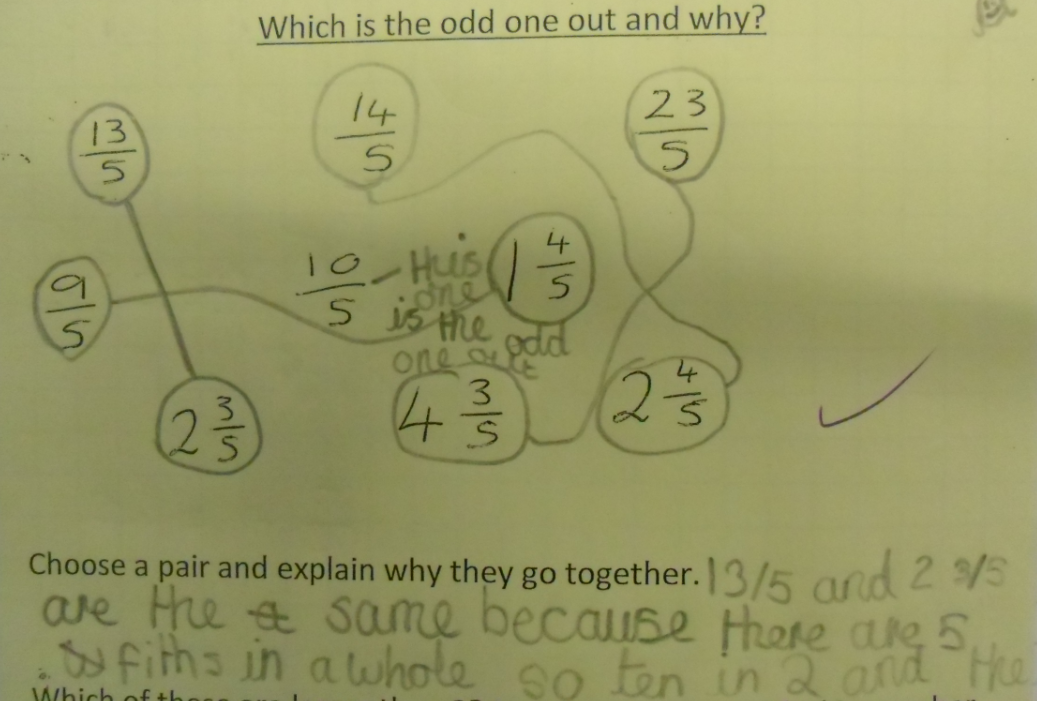 Which is the odd one out and why?
13/5
14/5
23/5
9/5
10/5 - this
one
is the odd
one out
1 4/5
2 3/5
4 3/5
2 4/5
Choose a pair and explain why they go together. 13/5 and 2 3/5
are the same because there are 5
fiths in a whole so ten in 2 and the